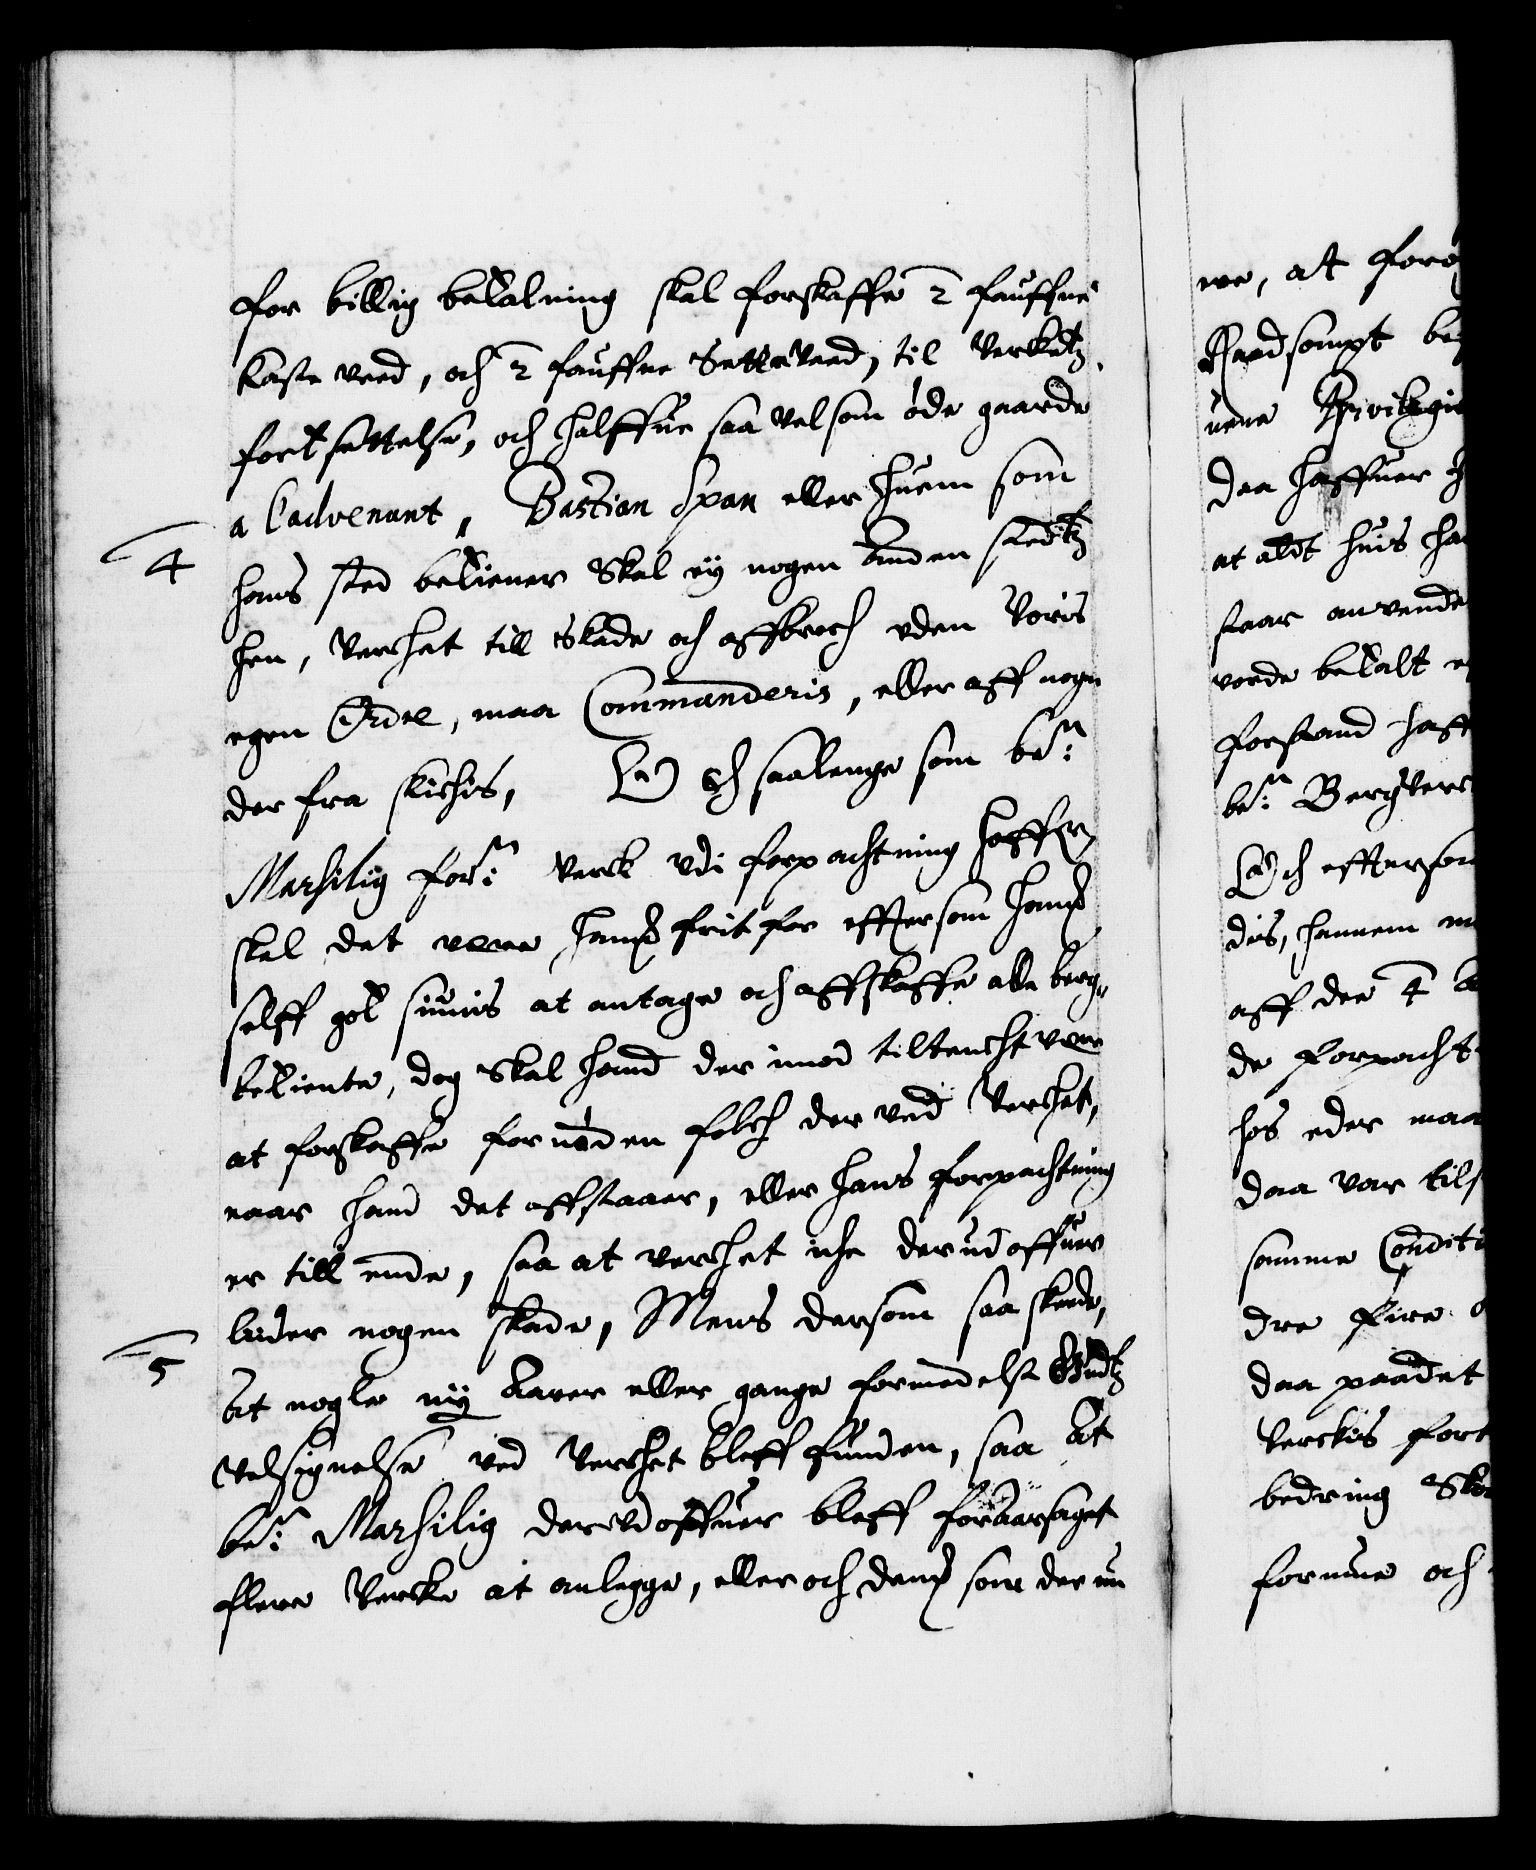 for billig betalning skal forskaffe 2 fauffne
kaste veed, och 2 fauffne Sette veed, til Verketz
fortsettelse, och halffue saa vel som øde gaarde
a l'advenant, Bastian Span eller huem som
4
hans sted betiener Skal eÿ nogen Anden stedtz
hen, Verchet till skade och affbrech uden Voris
egen Ordre, maa Commanderis, eller aff nogen
der fra skickis, Och saalenge som be:te
Marsiliÿ for:ne Verck udi forpachtning haffuer
skal det vere hannem frit for effter som hannem
selff got siunis at antage och affskaffe alle berg-
betiente, dog Skal hand der imod tiltencht vere
at forskaffe fornøden folch der ved Verchet,
naar hand det affstaaer, eller hans forpachtning
er till ende, saa at verchet iche derudoffuer
lider nogen skade, Mens dersom saa skeede,
5
At nogle nÿ Aarer eller gange formedelst Gudtz
Velsignelse ved Verchet bleff funden, saa At
be:te Marsiliÿ derudoffuer bleff foraarsaget
flere Vercke at anlegge, eller och dennem som der nu
re, at for
Raadsompt be
uene Privilegie
daa haffuer
at aldt huis ha
staar anvende
vorde betalt
forstand haff
be:te Bergverc
Och efftersom
dis, hannem m
aff dee 4
de forpacht
hos eder maa
daa var tils
samme Conditi
dre fire
daa paa det
Verckis fort
bedring Ska
formue och